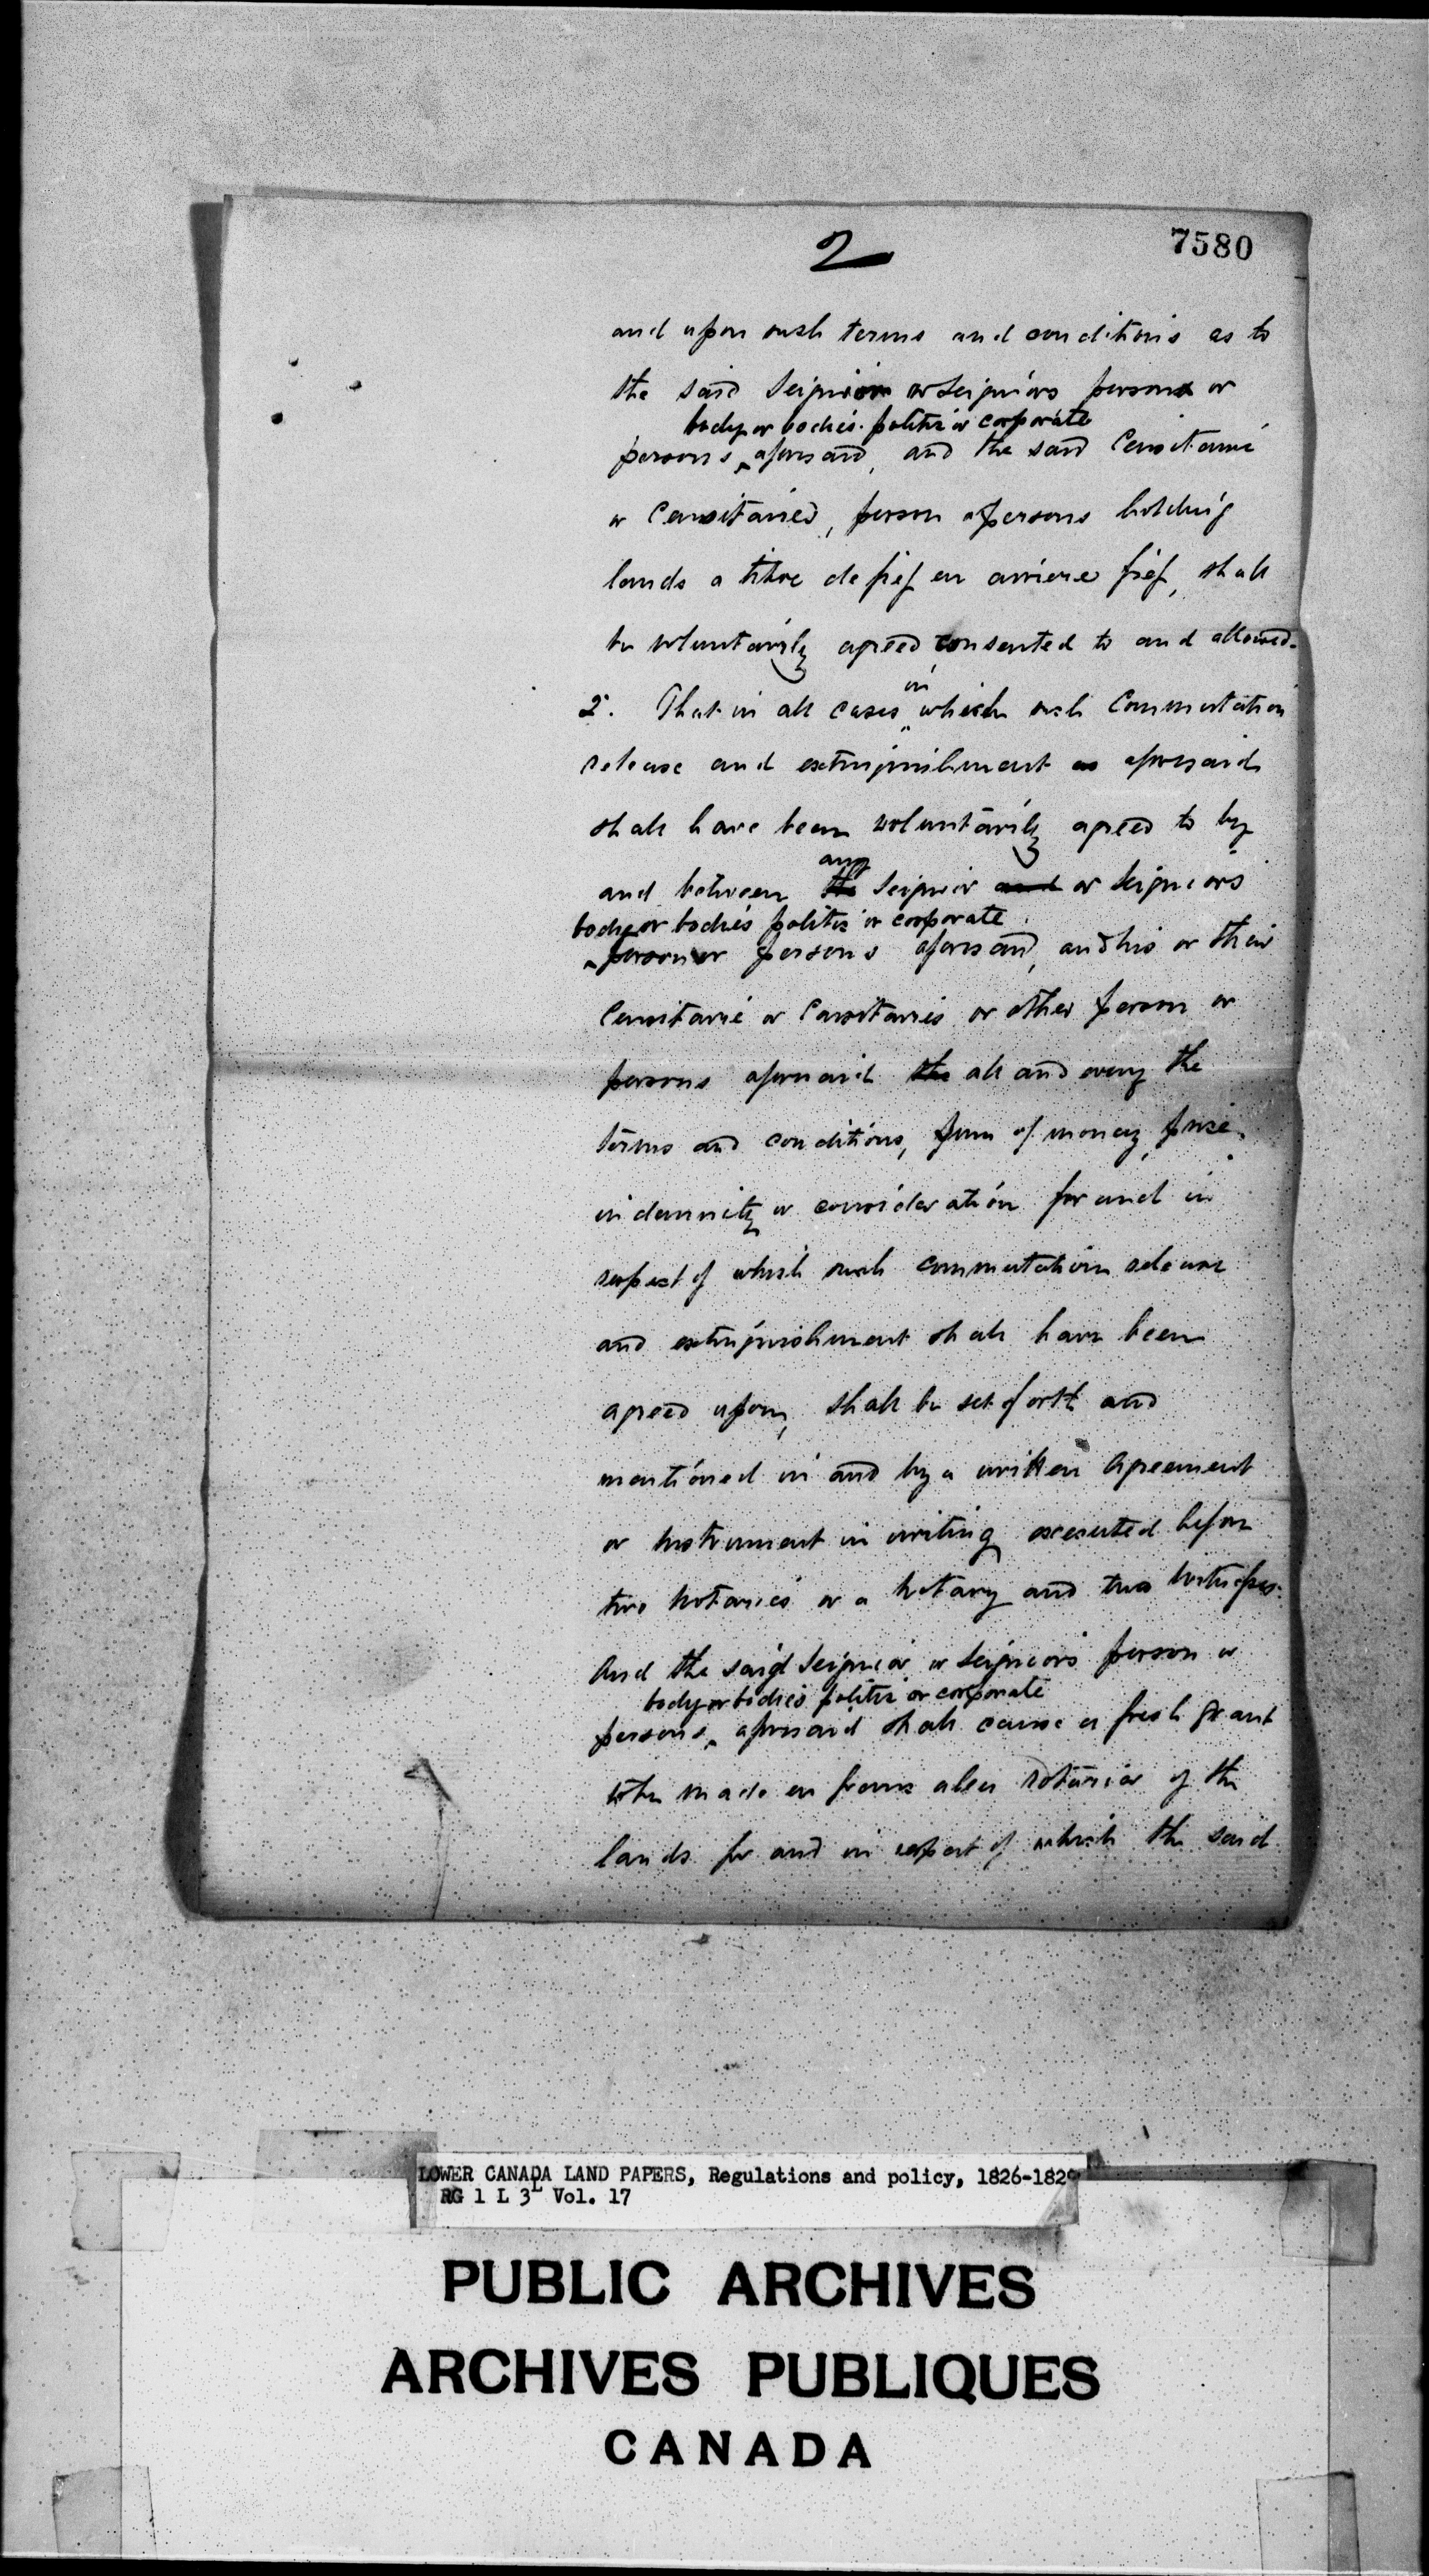 2
7580
and upon such terms and conditions as to
the said Seignior or Seigniors person or
body or bodies politic or corporate
persons aforesaid, and the said Censitaire
or Censitaires, person or persons holding
lands a titre de fief en arriere fief, shall
be voluntarily agreed consented to and allowed.
in
2°. That in all cases which such Commutation
release and extinguishment as aforesaid
shall have been voluntarily agreed to by
any
and between the Seignior and or Seigniors
body or bodies politic or corporate
person or persons aforesaid, and his or their
Censitaire or Censitaires or other person or
persons aforesaid the all and every the
terms and conditions, sum of money, price,
indemnity or consideration for and in
respect of which such commutation release
and extinguishment shall have been
agreed upon, shall be set forth and
mentioned in and by a written Agreement
or Instrument in writing executed before
two Notaries or a Notary and two Witnesses.
And the said Seignior or Seigniors person or
body or bodies politic or corporate
persons aforesaid shall cause a fresh Grant
to be made en franc aleu roturier of the
lands for and in respect of which the said
LOWER CANADA LAND PAPERS, Regulations and policy, 1826-1829
RG 1 L 3L Vol. 17
PUBLIC ARCHIVES
ARCHIVES PUBLIQUES
CANADA